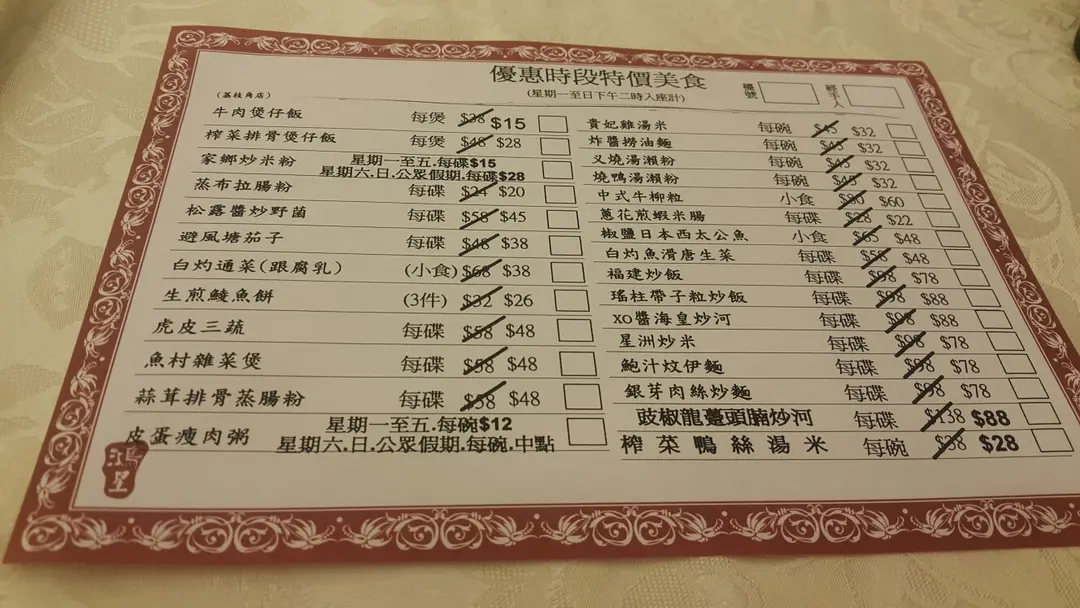 優惠時段特價美食
(星期一至日下午二時入座計)
檯號
經手人
(荔枝角店)
牛肉煲仔飯 每煲 $38 $15
榨菜排骨煲仔飯 每煲 $48 $28
家鄉炒米粉 星期一至五.每碟$15
星期六.日.公眾假期.每碟$28
蒸布拉腸粉 每碟 $24 $20
松露醬炒野菌 每碟 $58 $45
避風塘茄子 每碟 $48 $38
白灼通菜(跟腐乳) (小食) $68 $38
生煎鯪魚餅 (3件) $32 $26
虎皮三蔬 每碟 $58 $48
魚村雜菜煲 每碟 $58 $48
蒜茸排骨蒸腸粉 每碟 $58 $48
皮蛋瘦肉粥 星期一至五.每碗$12
星期六.日.公眾假期.每碗.中點
鴻星
貴妃雞湯米 每碗 $45 $32
炸醬撈油麵 每碗 $45 $32
叉燒湯瀨粉 每碗 $45 $32
燒鴨湯瀨粉 每碗 $45 $32
中式牛柳粒 小食 $80 $60
蔥花煎蝦米腸 每碟 $28 $22
椒鹽日本西太公魚 小食 $65 $48
白灼魚滑唐生菜 每碟 $58 $48
福建炒飯 每碟 $98 $78
瑤柱帶子粒炒飯 每碟 $98 $88
XO醬海皇炒河 每碟 $98 $88
星洲炒米 每碟 $98 $78
鮑汁炆伊麵 每碟 $98 $78
銀芽肉絲炒麵 每碟 $98 $78
豉椒龍躉頭腩炒河 每碟 $138 $88
榨菜鴨絲湯米 每碗 $38 $28